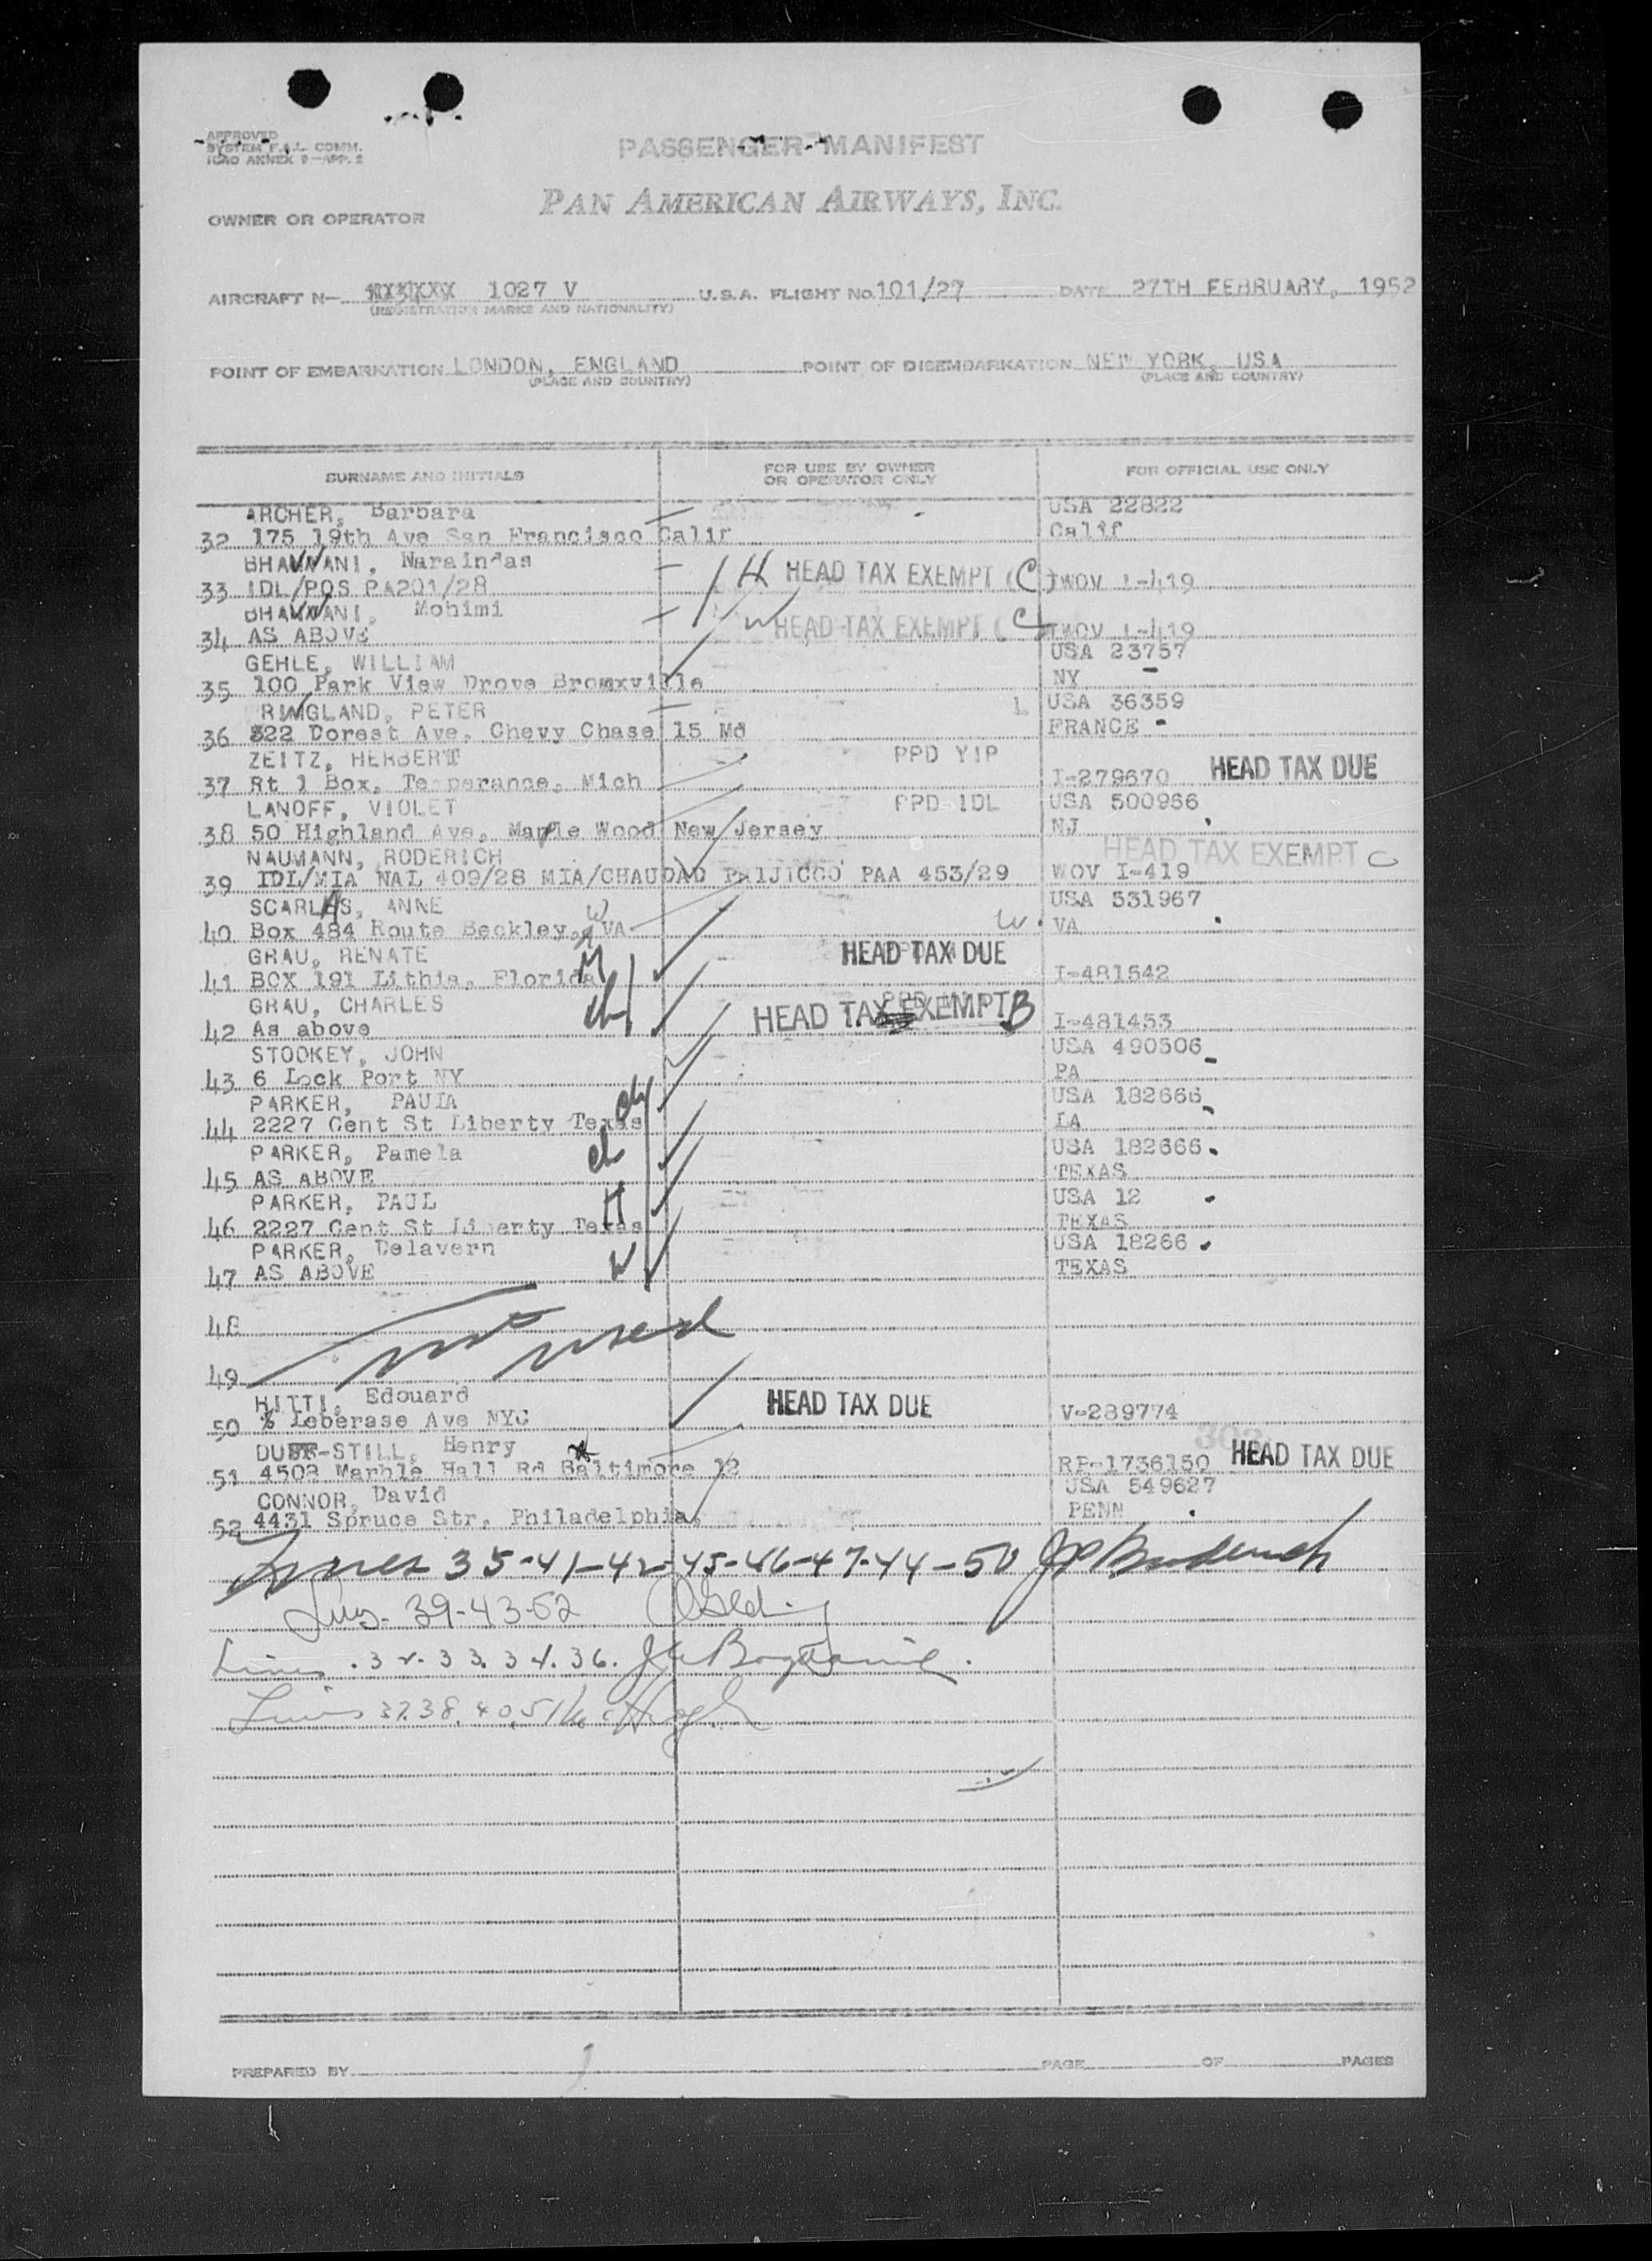 APPROVED
SYSTEM F.A.L. COMM.
ICAO ANNEX 9—APP. 2
PASSENGER MANIFEST
OWNER OR OPERATOR PAN AMERICAN AIRWAYS, INC.
AIRCRAFT N— 1027 V U.S.A. FLIGHT NO. 101/27 DATE 27TH FEBRUARY, 1952
(REGISTRATION MARKS AND NATIONALITY)
POINT OF EMBARKATION LONDON, ENGLAND POINT OF DISEMBARKATION NEW YORK, USA
(PLACE AND COUNTRY) (PLACE AND COUNTRY)
SURNAME AND INITIALS FOR USE BY OWNER OR OPERATOR ONLY FOR OFFICIAL USE ONLY
ARCHER, Barbara USA 22822
32 175 19th Ave San Francisco Calif Calif
Naraindas H HEAD TAX EXEMPT (C)
33 IDL/POS PA201/28 TWOV I-419
Mohimi W HEAD TAX EXEMPT (C
34 AS ABOVE TWOV I-419
GEHLE, WILLIAM USA 23757
35 100 Park View Drove Bromxville NY
RINGLAND, PETER L USA 36359
36 322 Dorest Ave, Chevy Chase 15 Md FRANCE
ZEITZ, HERBERT PPD YIP
37 Rt 1 Box, Temperance, Mich I-279670 HEAD TAX DUE
LANOFF, VIOLET PPD IDL USA 500966
38 50 Highland Ave, Maple Wood New Jersey NJ
NAUMANN, RODERICH HEAD TAX EXEMPT C
39 IDL/MIA NAL 409/28 MIA/CHAUDAD PAA 453/29 WOV I-419
ANNE USA 531967
40 Box 484 Route Beckley, W VA W VA
GRAU, RENATE M HEAD TAX DUE
41 BOX 191 Lithia, Florida I-481542
GRAU, CHARLES ch HEAD TAX EXEMPT B
42 As above I-481453
STOOKEY, JOHN USA 490506
43 6 Lock Port NY PA
PARKER, PAULA ch USA 182666
44 2227 Cent St Liberty Texas LA
PARKER, Pamela ch USA 182666
45 AS ABOVE TEXAS
PARKER, PAUL H USA 12
46 2227 Cent St Liberty Texas TEXAS
PARKER, Delavern W USA 18266
47 AS ABOVE TEXAS
48
not used
49
HITTI, Edouard HEAD TAX DUE
50 % Leberase Ave NYC V-289774
DUFF-STILL, Henry
51 4508 Marble Hall Rd Baltimore 12 RP-1736150 HEAD TAX DUE
CONNOR, David USA 549627
52 4431 Spruce Str, Philadelphia PENN
Lines 35-41-42-45-46-47-44-50
39-43-52
Lines 32. 33. 34. 36.
Lines 37.38.40.51
PREPARED BY PAGE OF PAGES